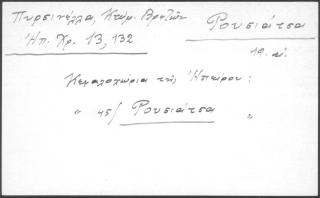 Πυρσινέλλα, Κτημ. Βρεζών Ρουσιάτσα
Ἠπ. Χρ. 13, 132
19. αἰ.
Κεφαλοχώρια τῆς Ἠπείρου:
" 45/ Ρουσιάτσα "